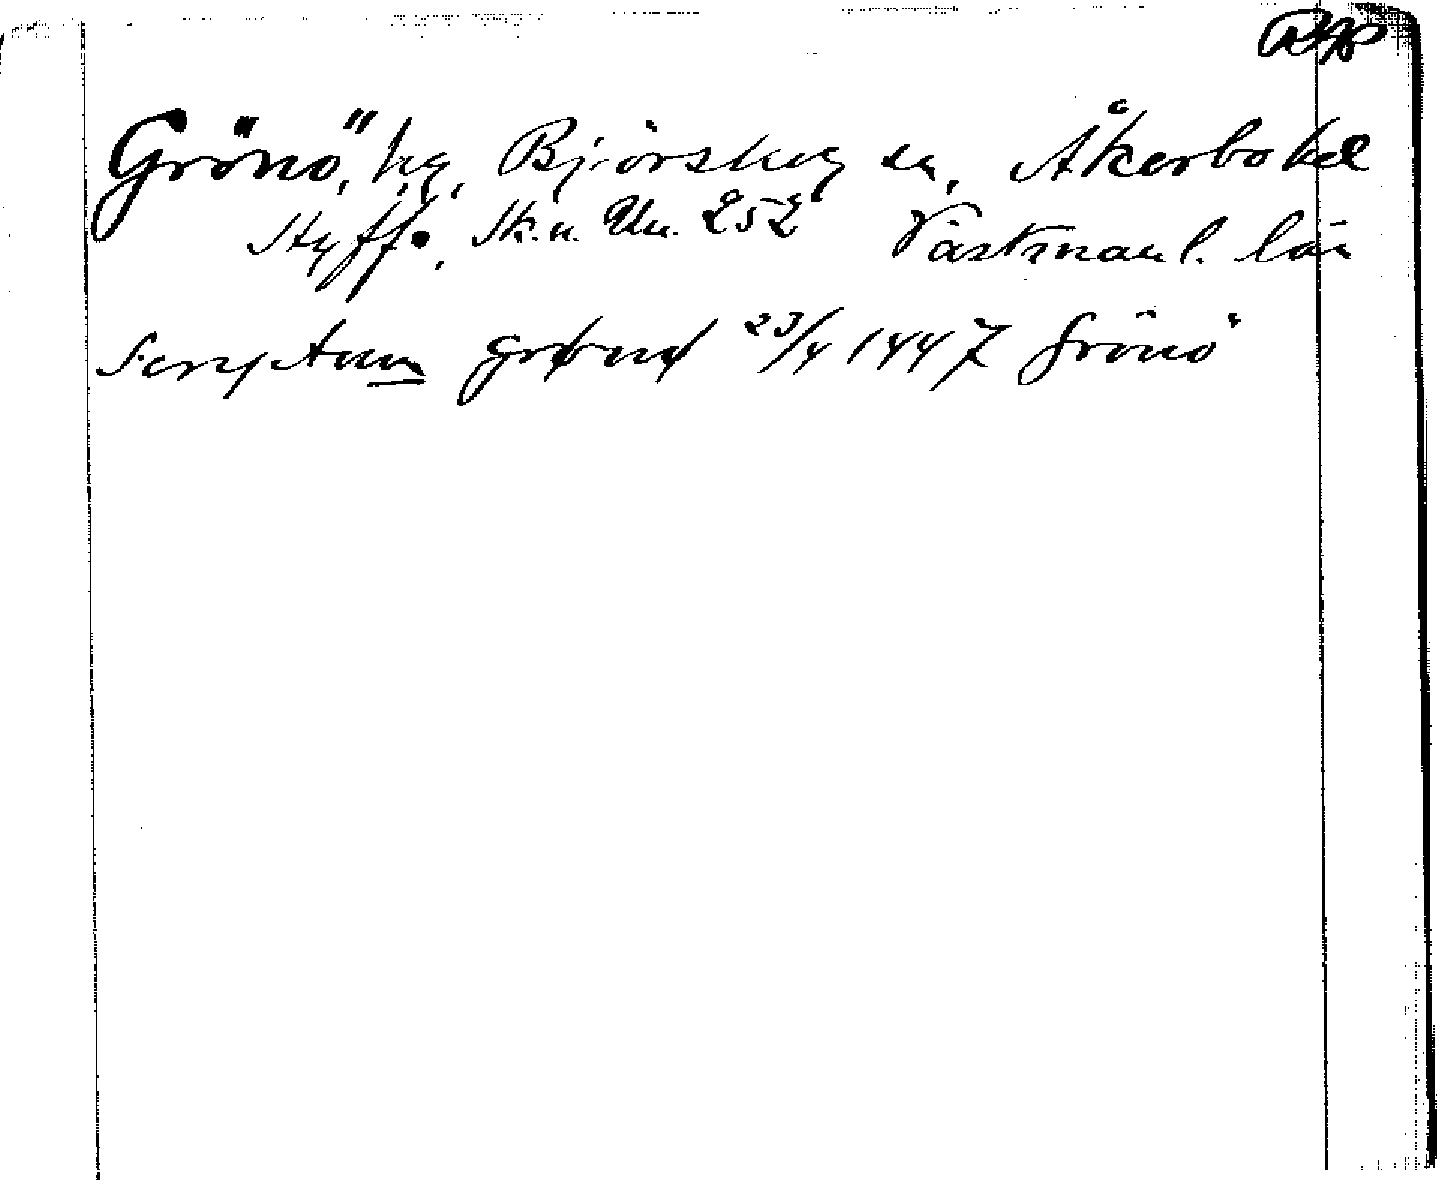 Grönö, hg, Björskog sn, Åkerbo hd
Styffe, Sk. u. Un. 252 Västmanl. län
Scriptum grønø 23/4 1447 Grönö